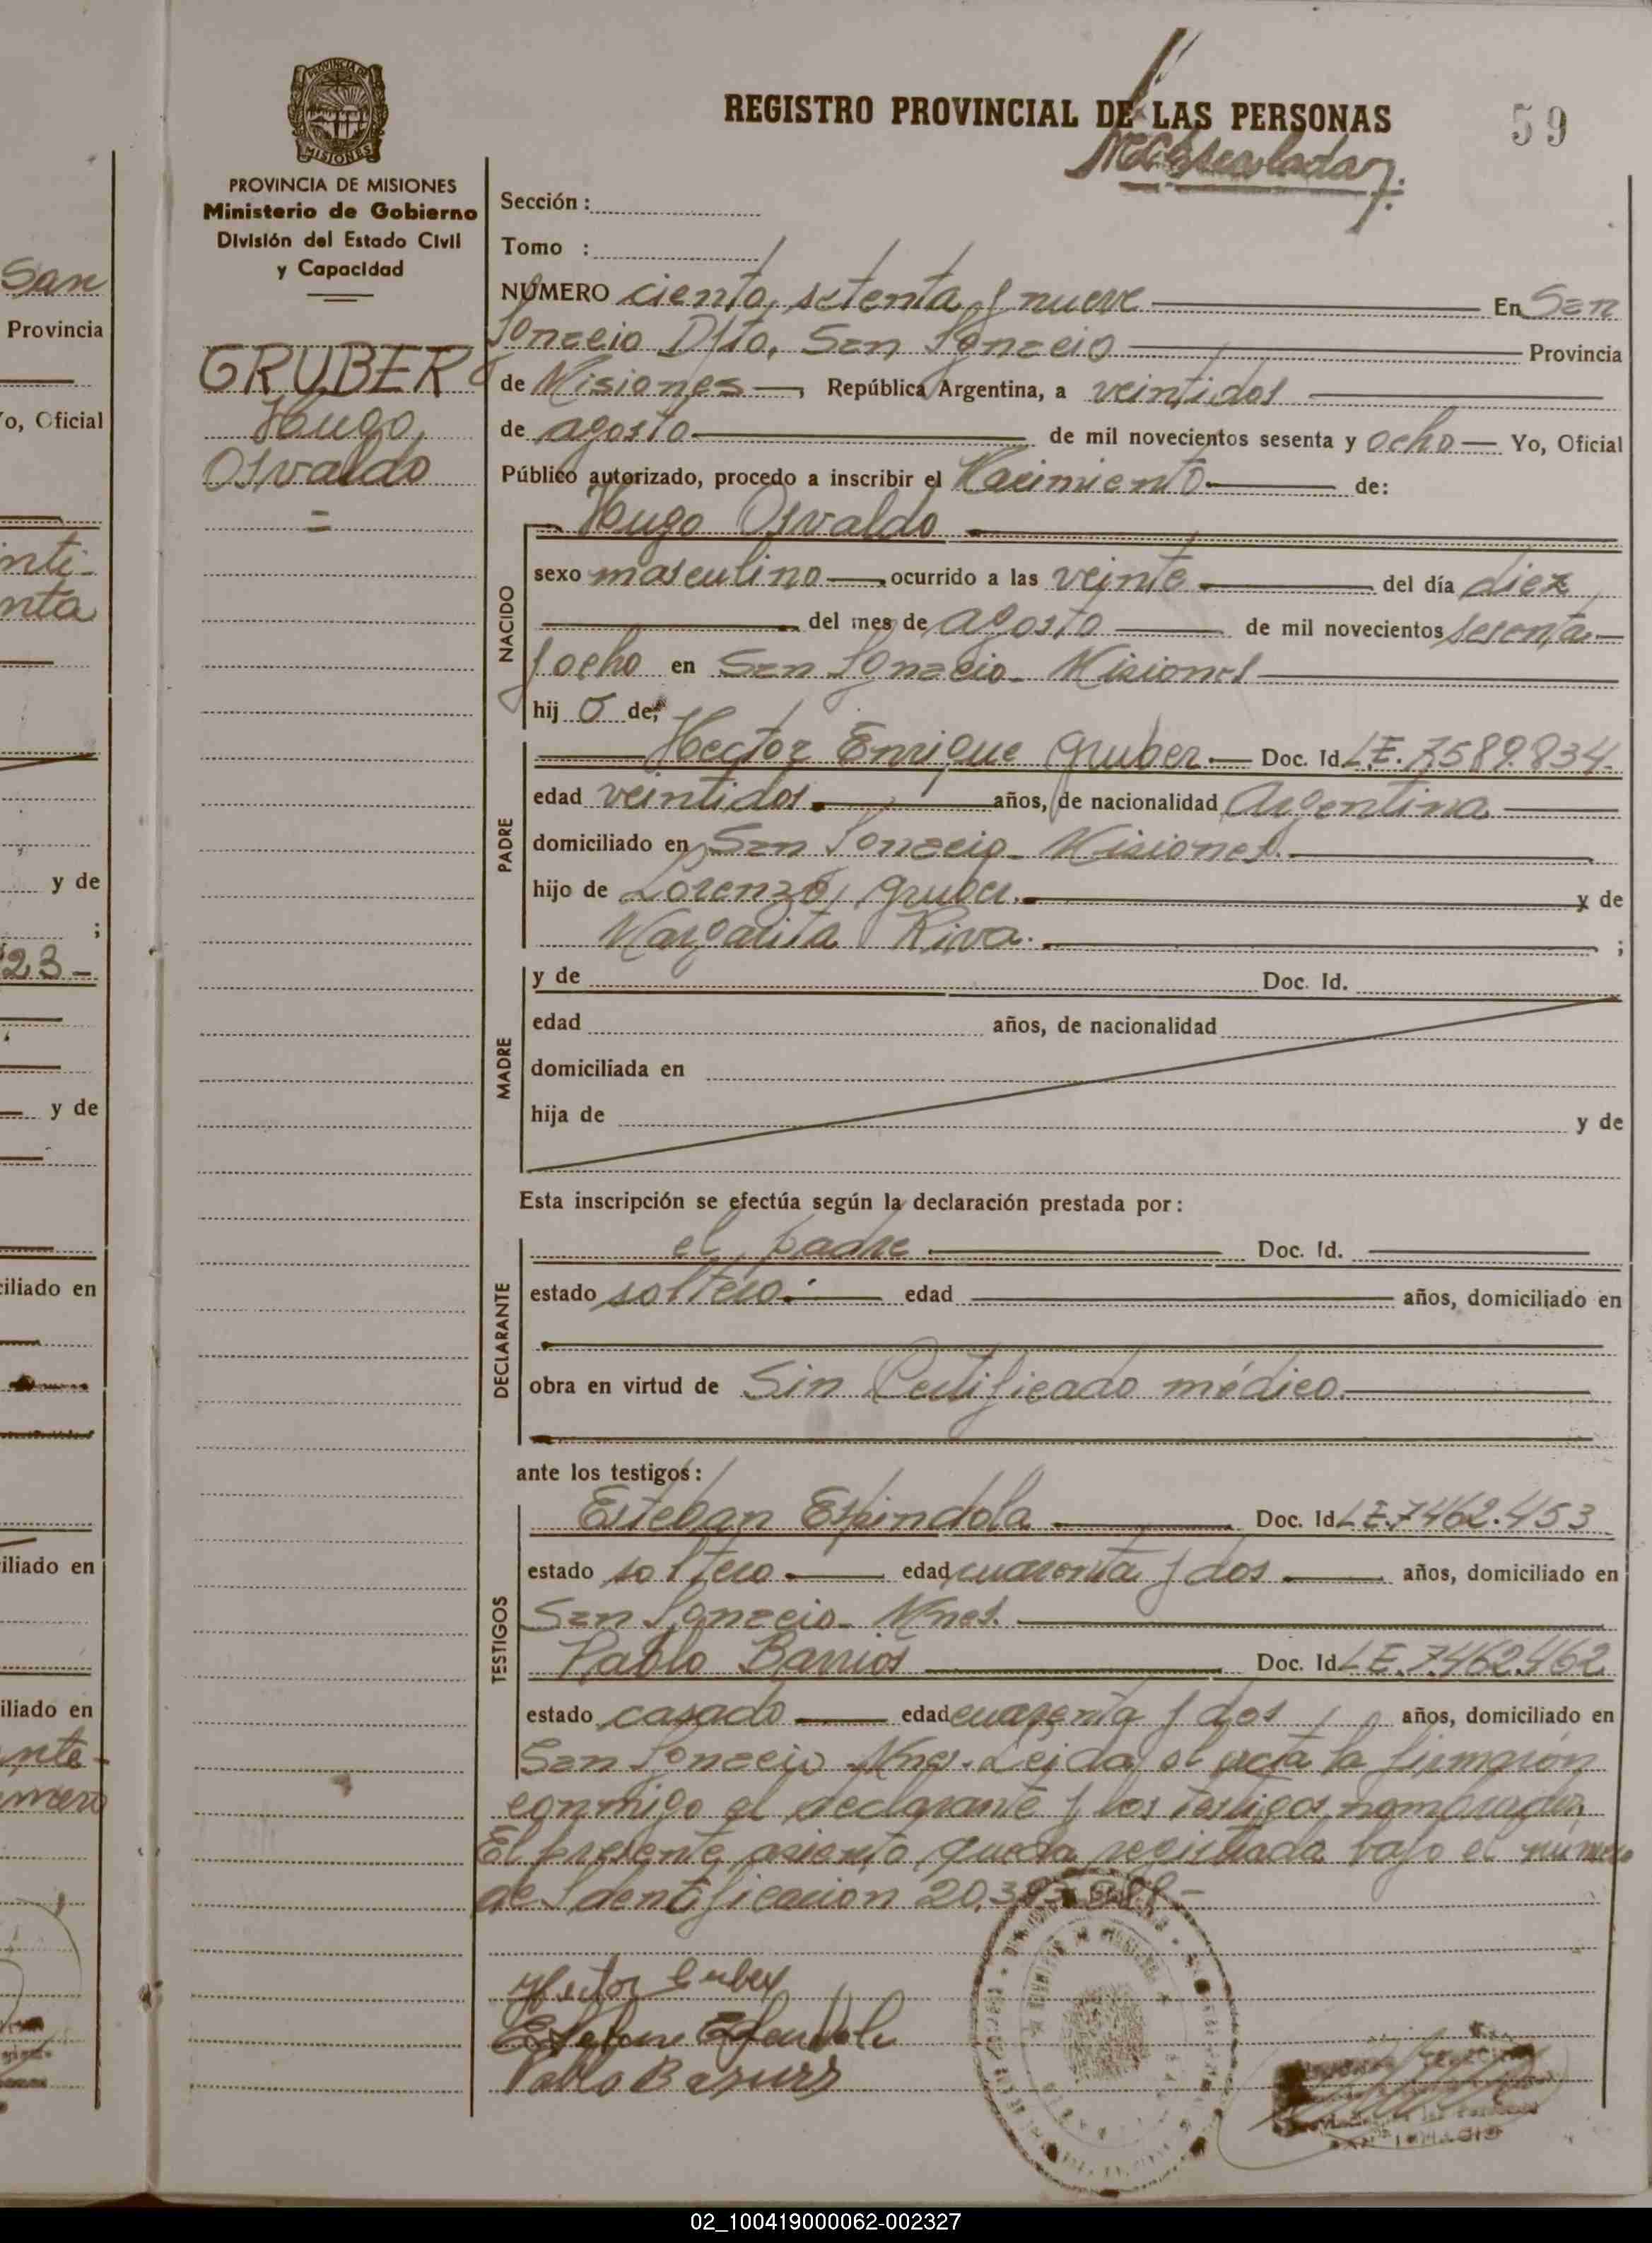 REGISTRO PROVINCIAL DE LAS PERSONAS
59
PROVINCIA DE MISIONES
Ministerio de Gobierno
División del Estado Civil
y Capacidad
GRUBER
Hugo
Osvaldo
=
Sección:
Tomo :
NÚMERO ciento setenta y nueve En San
Ignacio Dpto. San Ignacio Provincia
de Misiones, República Argentina, a veintidos
de agosto de mil novecientos sesenta y ocho Yo, Oficial
Público autorizado, procedo a inscribir el Nacimiento de:
Hugo Osvaldo
NACIDO
sexo masculino ocurrido a las veinte del día diez
del mes de agosto de mil novecientos sesenta
y ocho en San Ignacio - Misiones
hij o de;
PADRE
Hector Enrique Gruber Doc. Id. L.E. 7589.834.
edad veintidos años, de nacionalidad Argentina
domiciliado en San Ignacio - Misiones.
hijo de Lorenzo Gruber. y de
Margarita Riva. ;
MADRE
y de Doc. Id.
edad años, de nacionalidad
domiciliada en
hija de y de
Esta inscripción se efectúa según la declaración prestada por:
DECLARANTE
el padre Doc. Id.
estado soltero. edad años, domiciliado en
obra en virtud de Sin Certificado médico.
ante los testigos:
TESTIGOS
Esteban Espindola Doc. Id. L.E. 7462.453
estado soltero edad cuarenta y dos años, domiciliado en
San Ignacio - Mnes.
Pablo Barrios Doc. Id. L.E. 7.462.462
estado casado edad cuarenta y dos años, domiciliado en
San Ignacio Mnes. Leida el acta la firmaron
conmigo el declarante y los testigos nombrados.
El presente asiento queda registrado bajo el número
de Identificación 20.3
Hector Gruber
Esteban Espindola
Pablo Barrios
San
Provincia
Yo, Oficial
inti-
nta
y de
;
23-
y de
ciliado en
iliado en
iliado en
nte-
mero
02_100419000062-002327